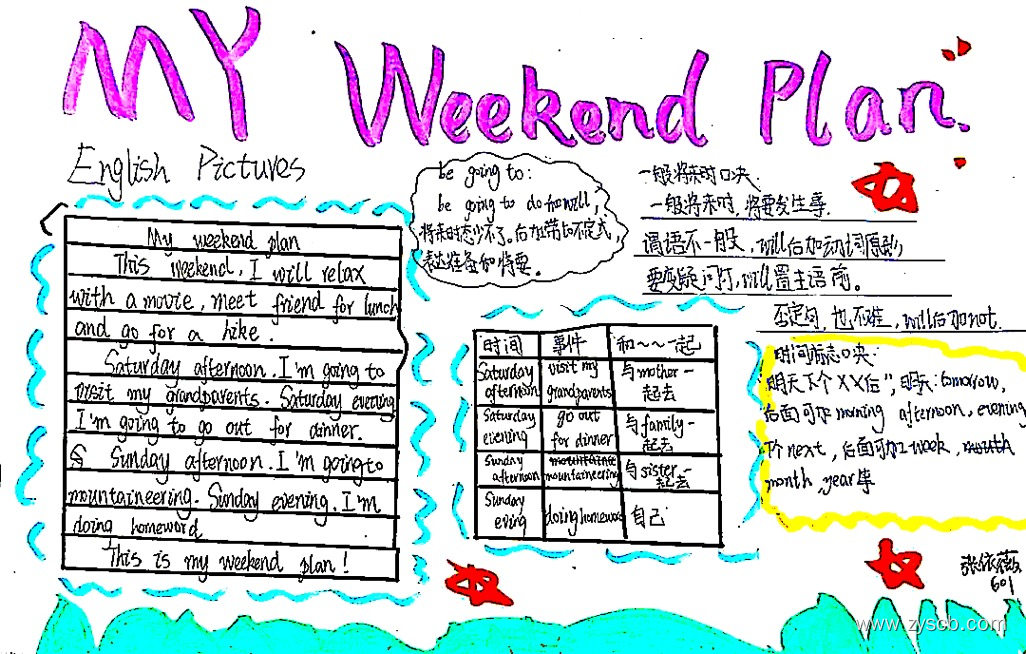 MY Weekend Plan.
English Pictures
My weekend plan
This weekend, I will relax
with a movie, meet friend for lunch
and go for a hike.
Saturday afternoon. I'm going to
visit my grandparents. Saturday evening
I'm going to go out for dinner.
Sunday afternoon. I'm going to
mountaineering. Sunday evening. I'm
doing homeword
This is my weekend plan!
be going to:
be going to do 和will,
将来时态少不了。后加带to不定式,
表达准备和将要。
一般将来时口决:
一般将来时,将要发生事.
谓语不一般,will后加动词原形
要变疑问句,will置主语前。
否定句,也不难,will后加not.
时间 事件 和~~一起
Saturday afternoon visit my grandparents 与mother一起去
Saturday evening go out for dinner 与family一起去
Sunday afternoon mountaineering 与sister一起去
Sunday eving doing homewo 自己
时间标志口决:
明天下个XX后",明天:tomorrow,
后面可加morning afternoon, evening
下个next,后面可加week,
month,year等
张依薇
601
www.zyscb.com